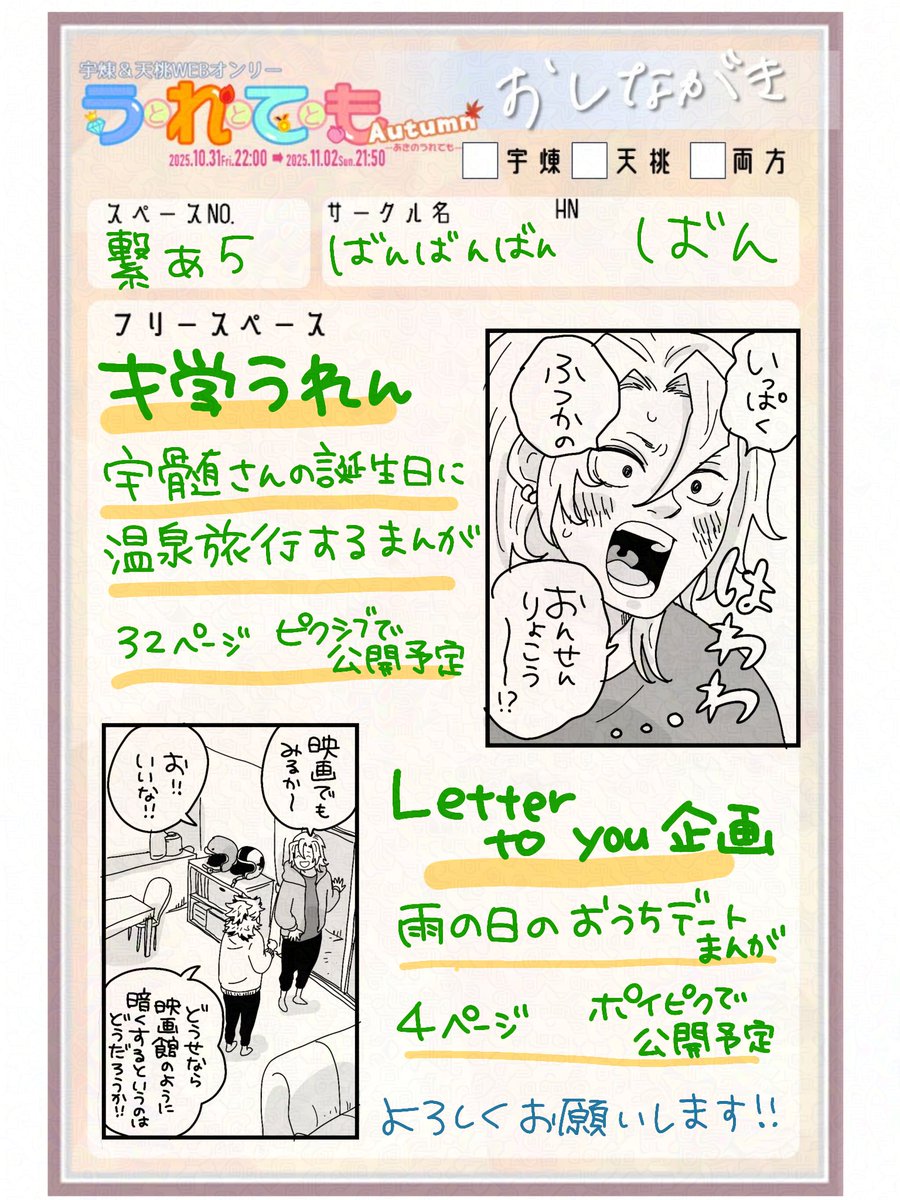 宇煉&天桃WEBオンリー
うとれとてとも
Autumn
―あきのうれても―
2025.10.31Fri.22:00 ➡ 2025.11.02Sun.21:50
おしながき
宇煉 天桃 両方
スペースNO.
繋あ5
サークル名
ばんばんばん
HN
ばん
フリースペース
キ学うれん
宇髄さんの誕生日に
温泉旅行するまんが
32ページ ピクシブで
公開予定
いっぱく
ふつかの
おんせん
りょこう
〜!?
はわわ
わ...
映画でも
みるか〜
お!!
いいな!!
どうせなら
映画館のように
暗くするというのは
どうだろうか!!
Letter
to you 企画
雨の日のおうちデート
まんが
4ページ ポイピクで
公開予定
よろしくお願いします!!